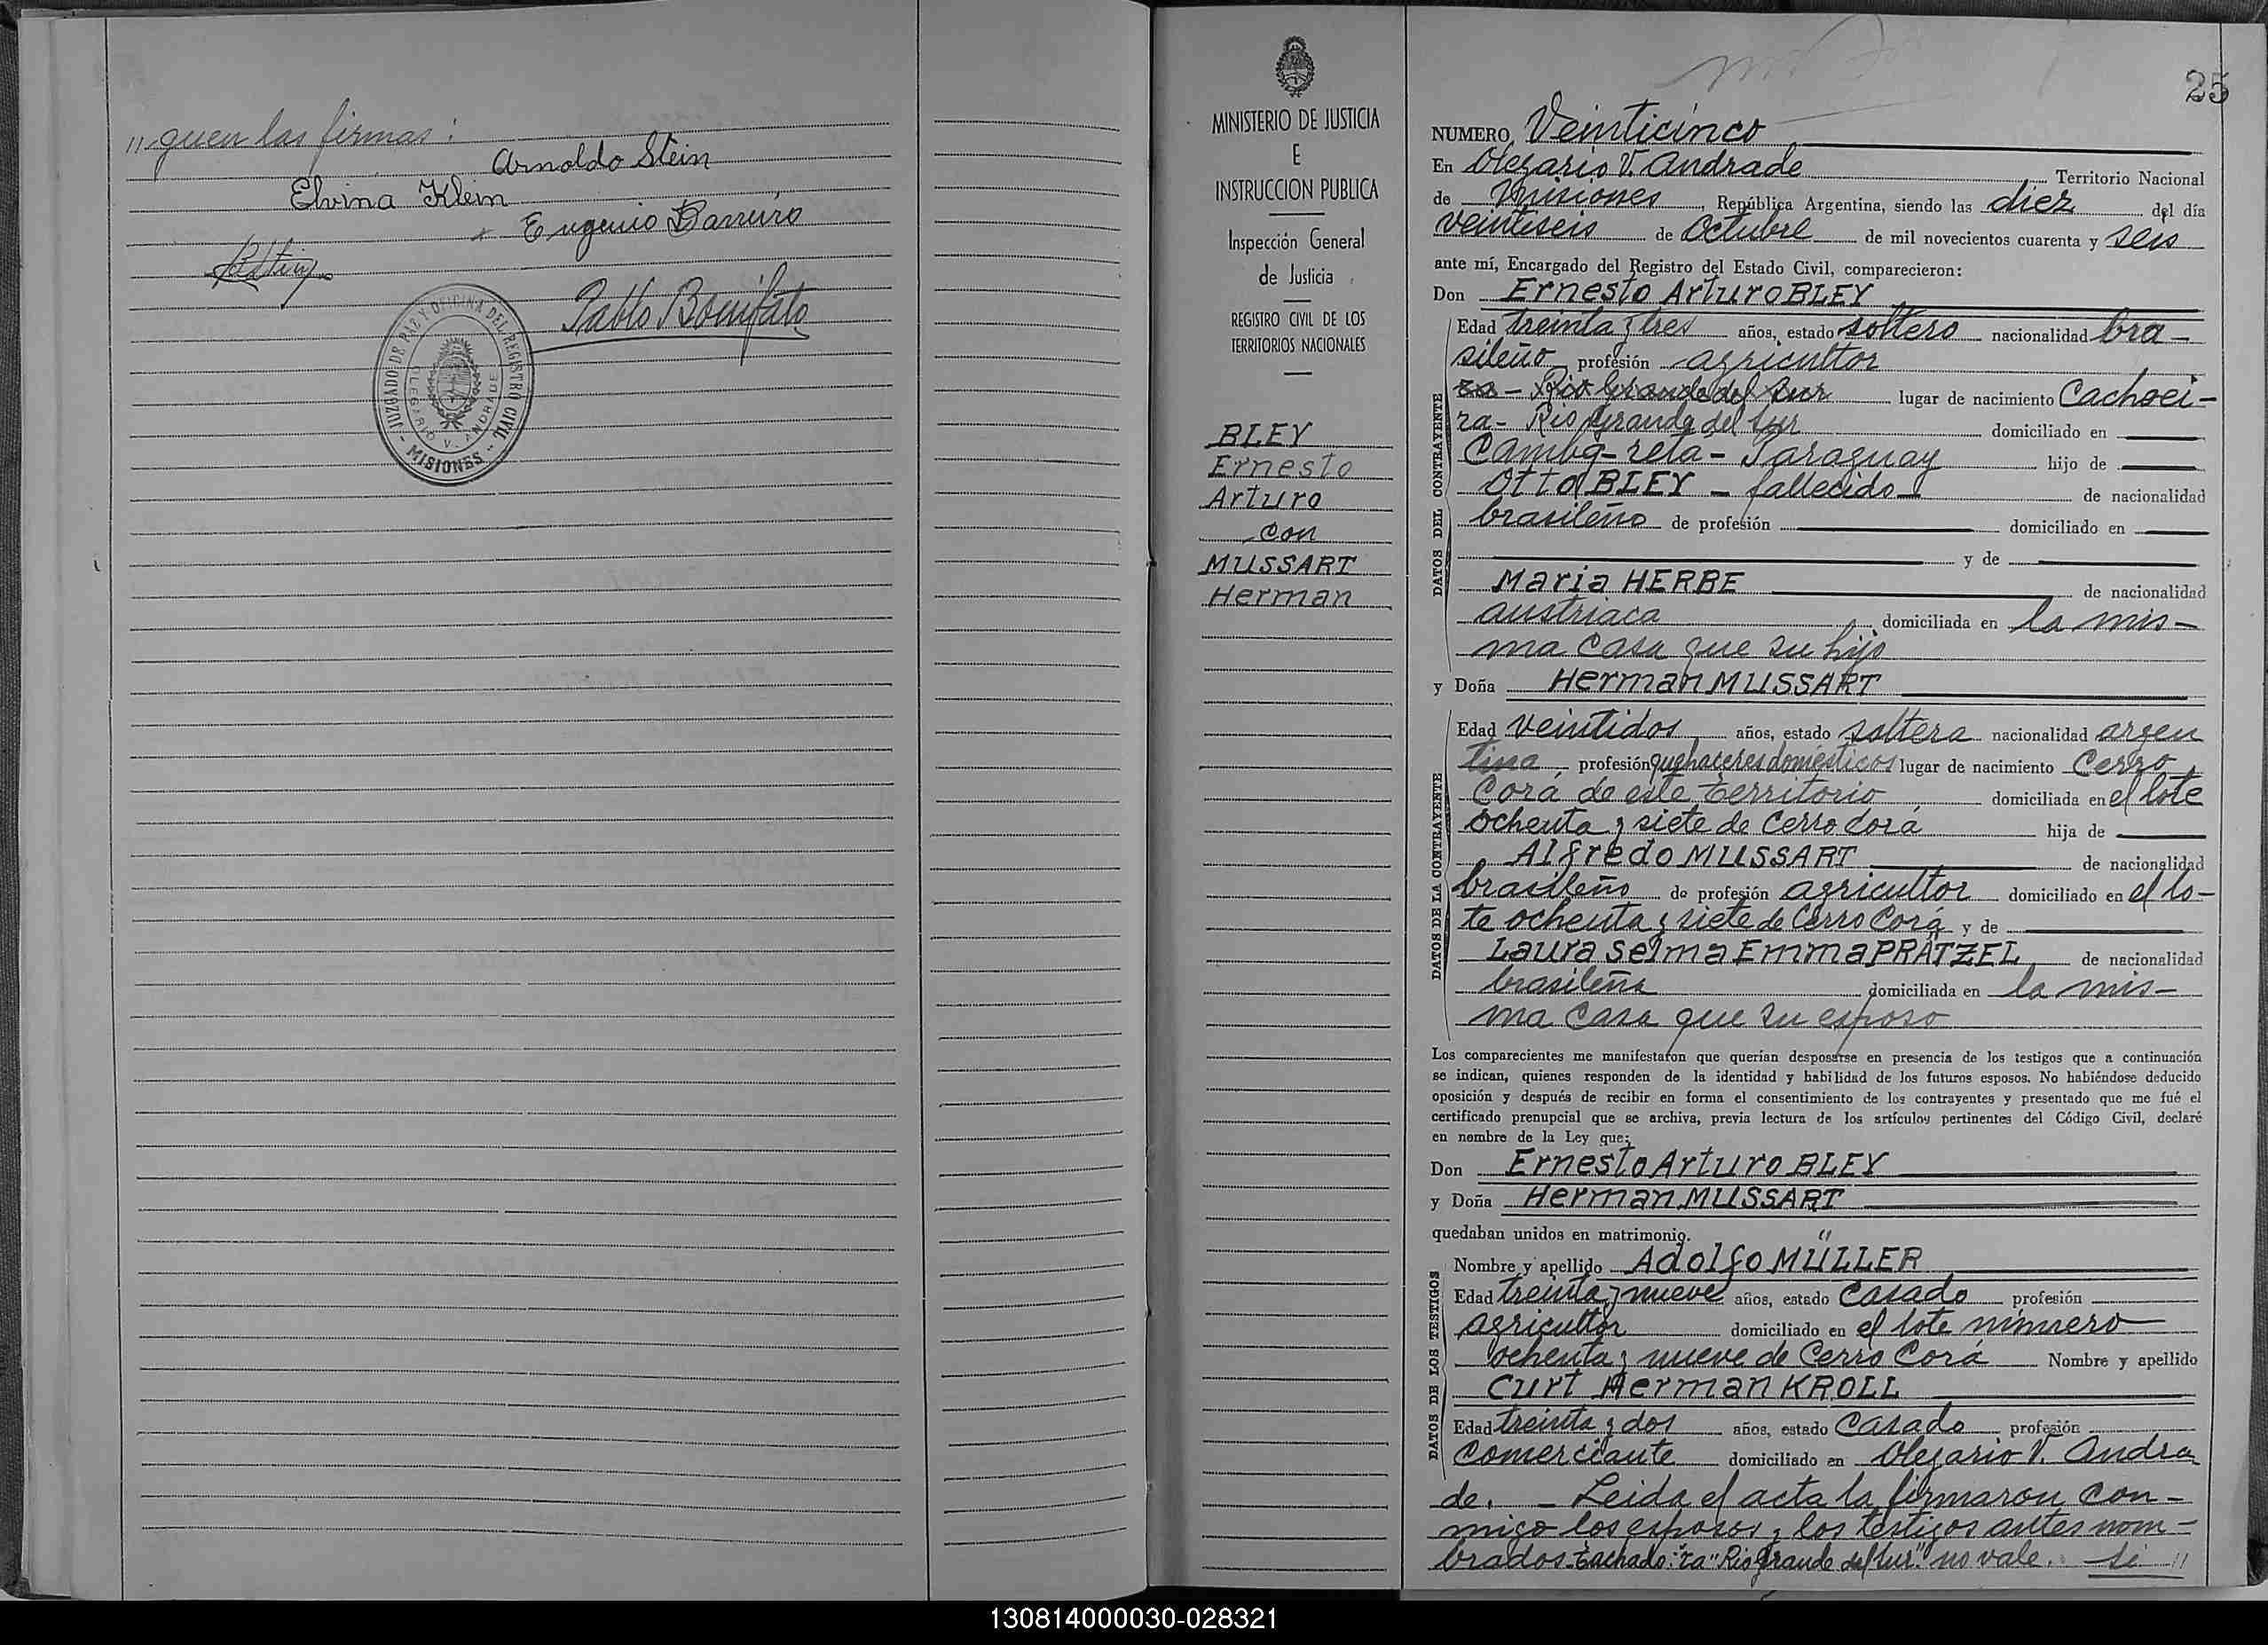 "guen las firmas:
Arnoldo Stein
Elvina Klein
Eugenio Barreiro
Pablo Bonifato
JUZGADO DE PAZ Y OFICINA DEL REGISTRO CIVIL
OLEGARIO V. ANDRADE
- MISIONES -
MINISTERIO DE JUSTICIA
E
INSTRUCCION PUBLICA
Inspección General
de Justicia
REGISTRO CIVIL DE LOS
TERRITORIOS NACIONALES
BLEY
Ernesto
Arturo
con
MUSSART
Herman
25
NUMERO Veinticinco
En Olegario V. Andrade Territorio Nacional
de Misiones, República Argentina, siendo las diez del día
veintiseis de Octubre de mil novecientos cuarenta y seis
ante mí, Encargado del Registro del Estado Civil, comparecieron:
Don Ernesto Arturo BLEY
DATOS DEL CONTRAYENTE
Edad treinta y tres años, estado soltero nacionalidad bra-
sileño profesión agricultor
ra - Rio Grande del Sur lugar de nacimiento Cachoei-
ra - Rio Grande del Sur domiciliado en
Camba-retá - Paraguay hijo de
Otto BLEY - fallecido - de nacionalidad
brasileño de profesión domiciliado en
y de
Maria HERBE de nacionalidad
austriaca domiciliada en la mis-
ma casa que su hijo
y Doña Herman MUSSART
DATOS DE LA CONTRAYENTE
Edad veintidos años, estado soltera nacionalidad argen
tina, profesión quehaceres domésticos lugar de nacimiento Cerro
Corá de este territorio domiciliada en el lote
ochenta y siete de Cerro Corá hija de
Alfredo MUSSART de nacionalidad
brasileño de profesión agricultor domiciliado en el lo-
te ochenta y siete de Cerro Corá y de
Laura Selma Emma PRÄTZEL de nacionalidad
brasileña domiciliada en la mis-
ma casa que su esposo
Los comparecientes me manifestaron que querían desposarse en presencia de los testigos que a continuación
se indican, quienes responden de la identidad y habilidad de los futuros esposos. No habiéndose deducido
oposición y después de recibir en forma el consentimiento de los contrayentes y presentado que me fué el
certificado prenupcial que se archiva, previa lectura de los artículos pertinentes del Código Civil, declaré
en nombre de la Ley que:
Don Ernesto Arturo BLEY
y Doña Herman MUSSART
quedaban unidos en matrimonio.
DATOS DE LOS TESTIGOS
Nombre y apellido Adolfo MÜLLER
Edad treinta y nueve años, estado Casado profesión
agricultor domiciliado en el lote número
ochenta y nueve de Cerro Corá Nombre y apellido
Curt Herman KROLL
Edad treinta y dos años, estado Casado profesión
comerciante domiciliado en Olegario V. Andra
de. - Leida el acta la firmaron con-
migo los esposos y los testigos antes nom-
brados. Tachado: "ra" Rio Grande del Sur." no vale. - Si "
130814000030-028321